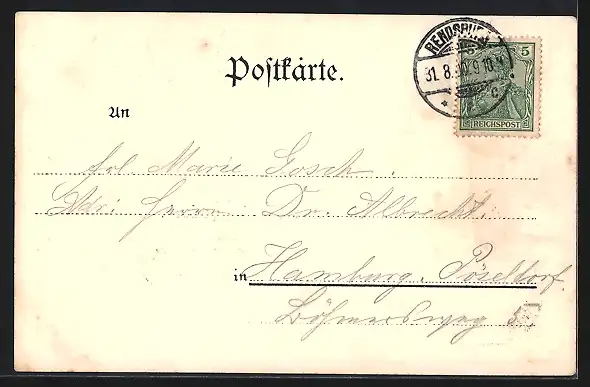 Postkarte.
RENDSBURG
31.8.
9-10 V
c
5
REICHSPOST
An
Frl. Marie Gosch.
Adr: Herrn Dr. Albrecht.
in Hamburg. Pöseldorf.
Böhmersweg